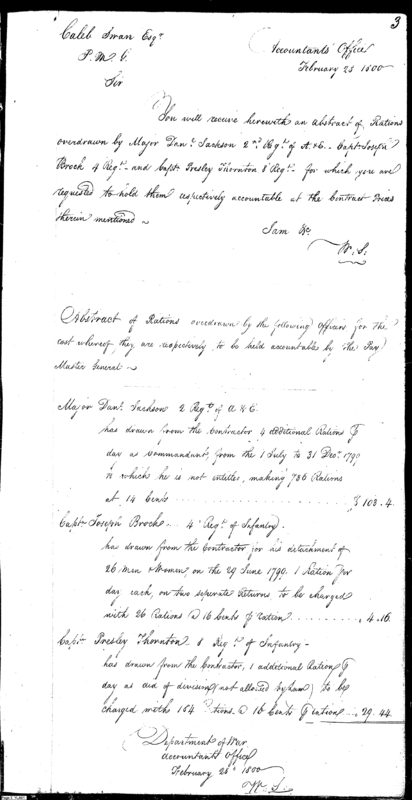 3
Caleb Swan Esqr.
P. M. G.
Sir
Accountants Office
February 25 1800
You will receive herewith an Abstract of Rations
overdrawn by Major Danl. Jackson 2nd Regt. of A. & E. Capt. Joseph
Brock 4 Regt. and Capt. Presley Thornton 8 Regt. for which you are
requested to hold them respectively accountable at the Contract Prices
therein mentioned
I am &c.
W. S.
Abstract of Rations overdrawn by the following Officers for the
cost whereof, they are respectively to be held accountable by the Pay
Master General
Major Danl. Jackson 2 Regt. of A & E
has drawn from the Contractor 4 additional Rations P
day as Commandant, from the 1 July to 31 Decr. 1799
to which he is not entitled, making 736 Rations
at 14 Cents $ 103.4
Captn. Joseph Brock 4 Regt. of Infantry
has drawn from the Contractor for his detachment of
26 Men & Women, on the 29 June 1799. 1 Ration Per
day each, on two seperate returns to be charged
with 26 Rations @ 16 Cents P ration 4.16
Captn. Presley Thornton 8 Regt. of Infantry
has drawn from the Contractor, 1 additional Ration P
day as aid of division (not allowed by Law) to be
charged with 184 Rations @ 16 Cents P ration 29.44
Department of War
Accountants Office
February 25th 1800
W. S.